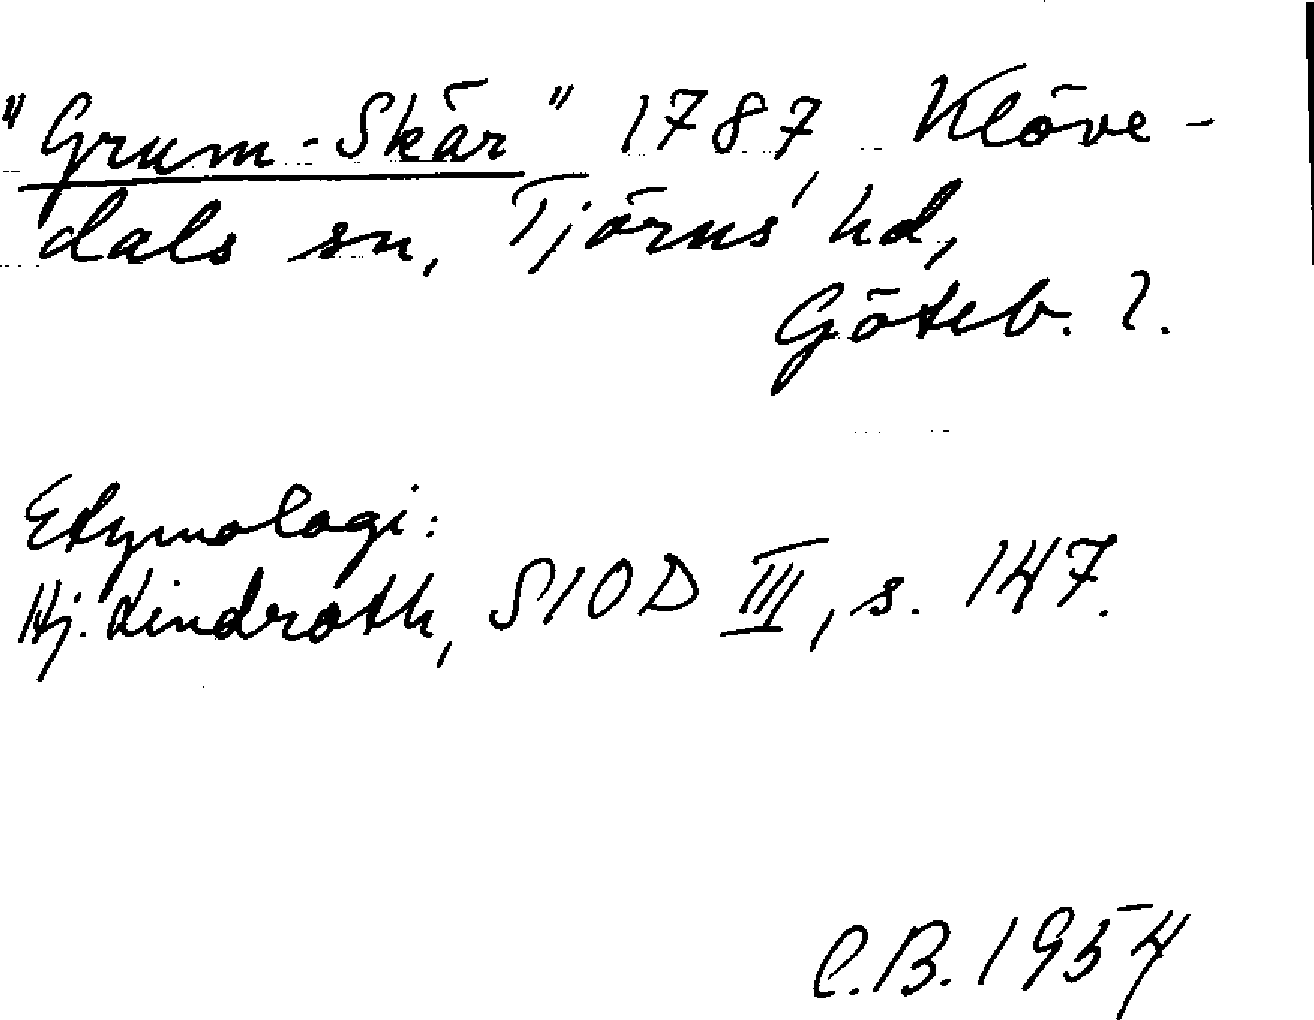 "Grum-Skär" 1787, Klöve-
dals sn, Tjörns hd,
Göteb. l.
Etymologi:
Hj. Lindroth, SIOD III, s. 147.
C.B. 1954